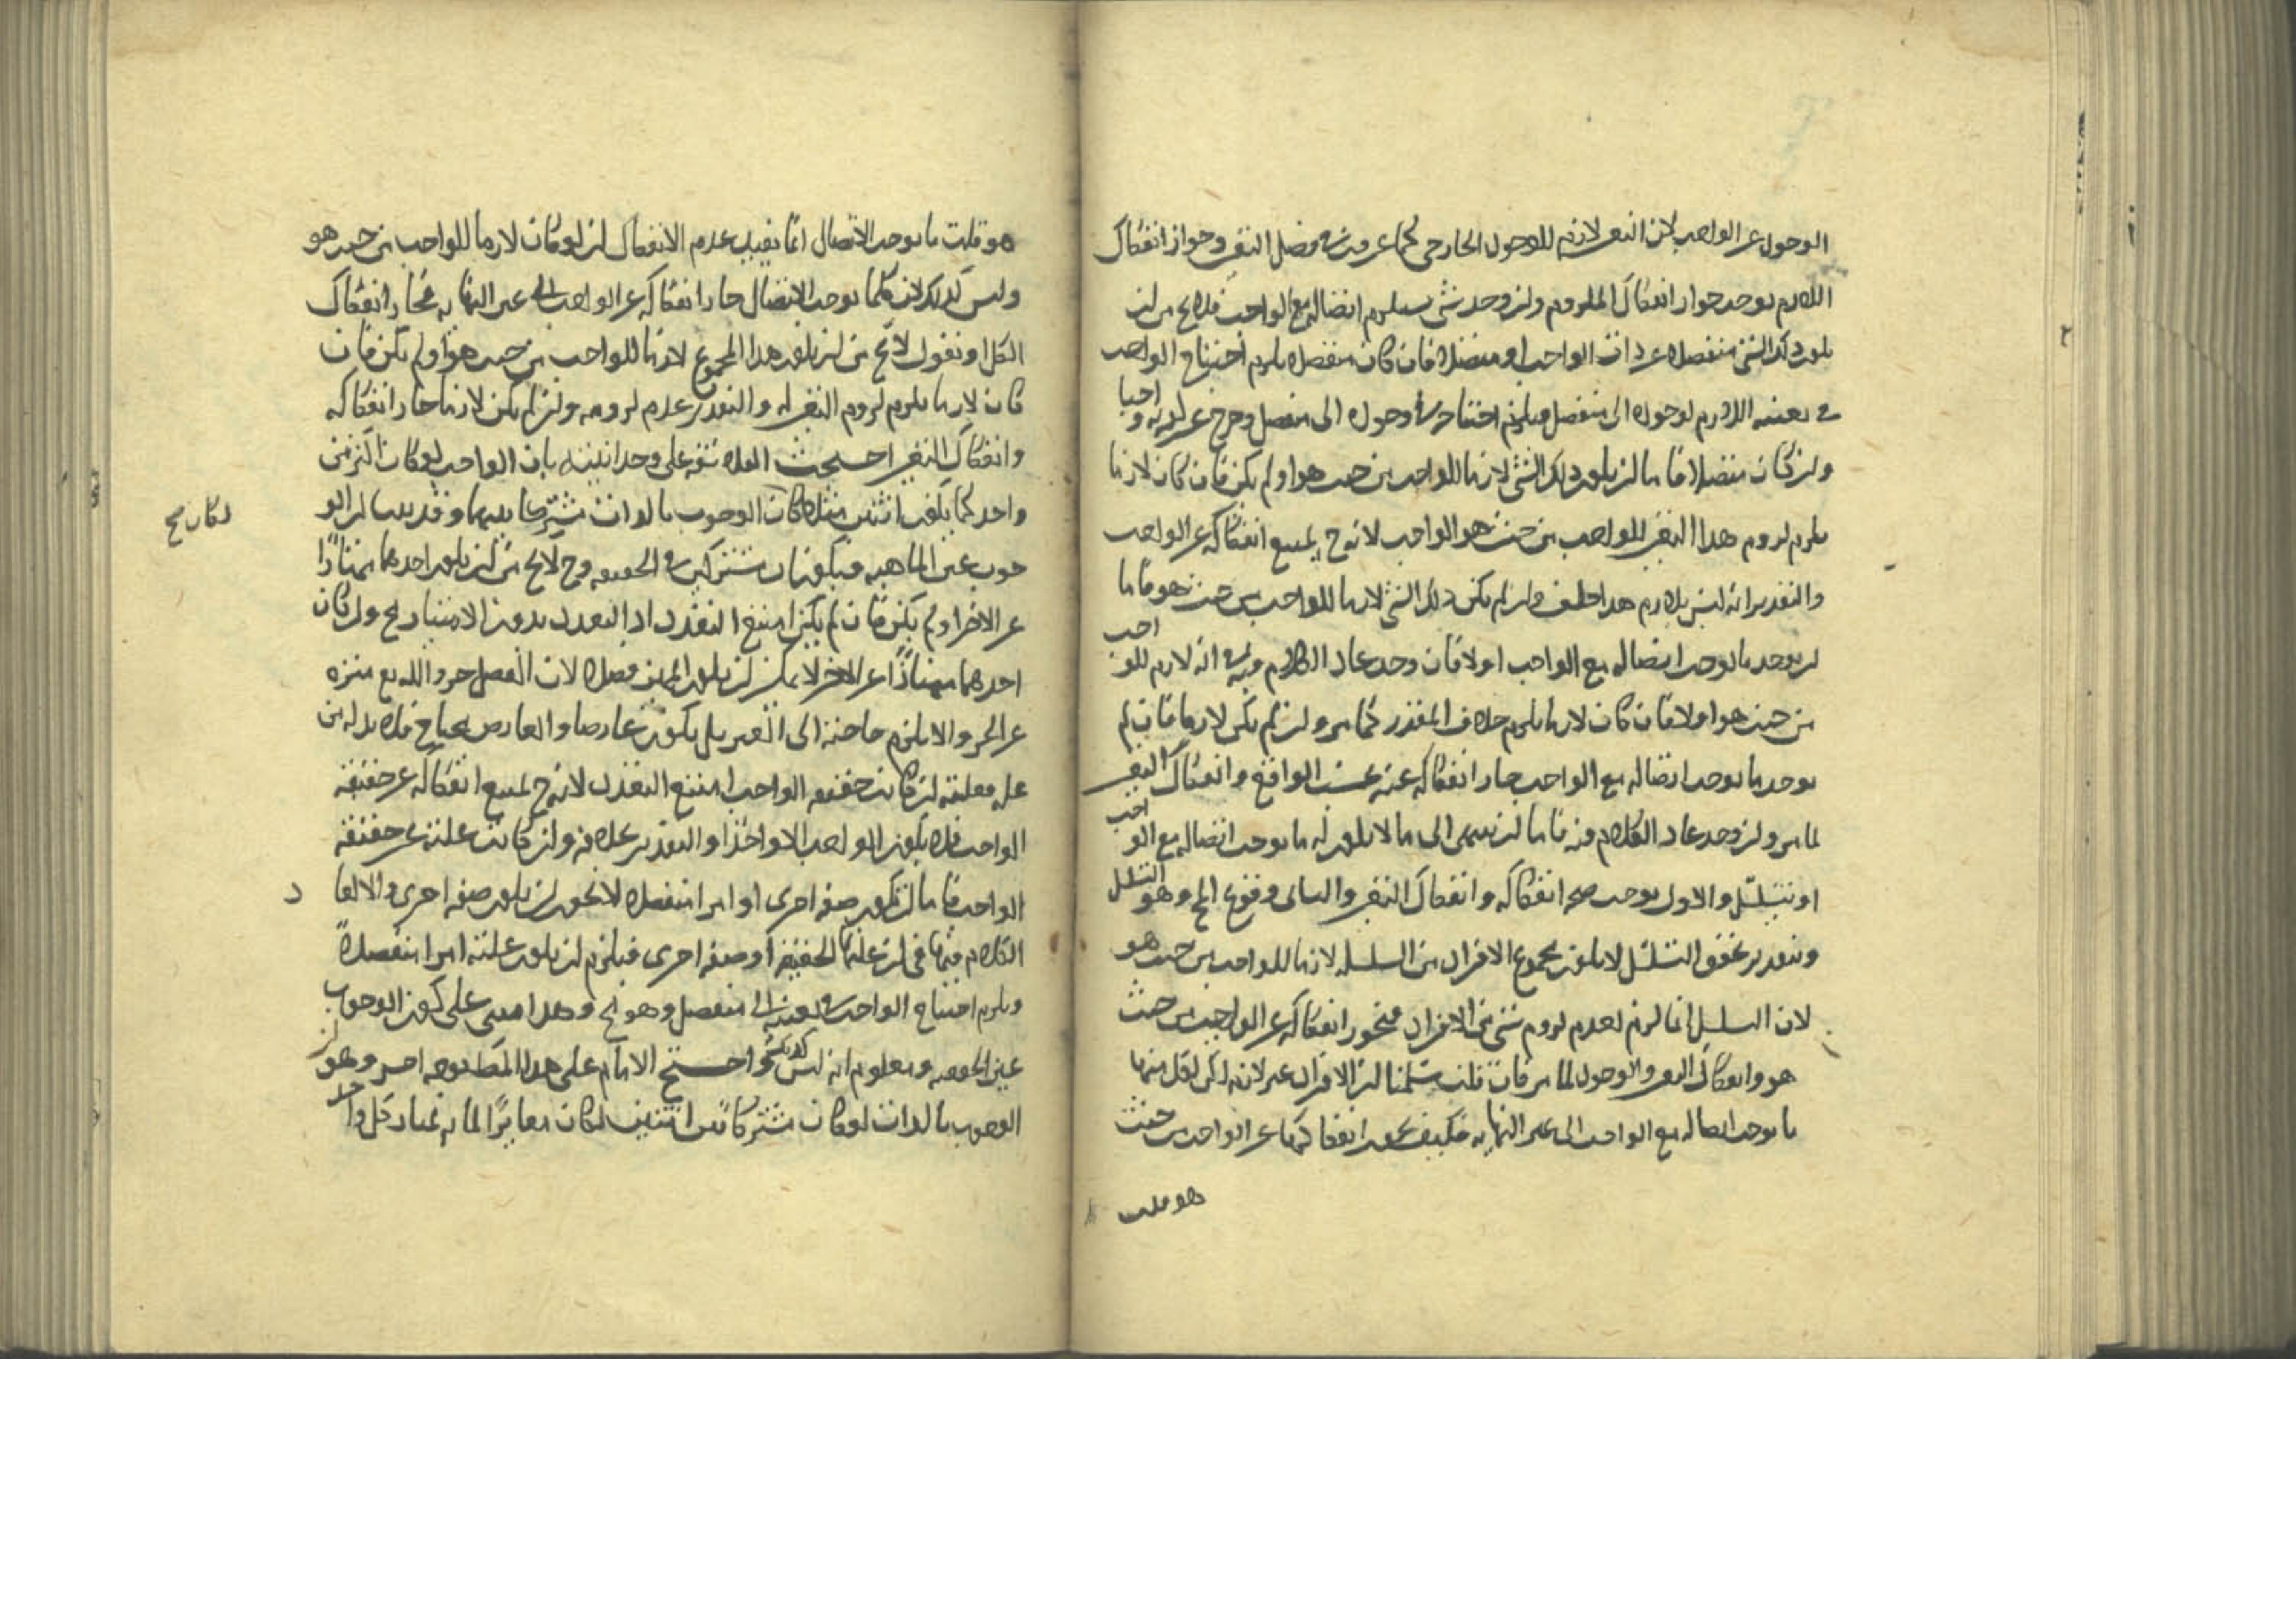 الوجود عن الواجب لان التعين لازم للوجود الخارجى كما عرفت فى فصل التعين وجواز انفكاك
اللازم يوجب جواز انفكاك الملزوم وان وجد شئ يستلزم اتصاله مع الواجب فلا يخ من ان
يكون ذلك الشئ منفصلا عن ذات الواجب او متصلا فان كان منفصلا يلزم احتياج الواجب
فى تعينه اللازم لوجوده الى منفصل فيلزم احتياجه فى وجوده الى منفصل وخرج عن كونه واجبا
وان كان متصلا فاما ان يكون ذلك الشئ لازما للواجب من حيث هو او لم يكن فان كان لازما
يلزم لزوم هذا التعين للواجب من حيث هو الواجب لانه ح يمتنع انفكاكه عن الواجب
والتقدير انه ليس بلازم هذا خلف وان لم يكن ذلك الشئ لازما للواجب من حيث هو فاما
ان يوجد ما يوجب اتصاله مع الواجب او لا فان وجد عاد الكلام فيه فى انه لازم للواجب
من حيث هو او لا فان كان لازما يلزم خلاف المقدر كما مر وان لم يكن لازما فان لم
يوجد ما يوجب اتصاله مع الواجب جاز انفكاكه عنه بحسب الواقع وانفكاك التعين
لما مر وان وجد عاد الكلام فيه فاما ان ينتهى الى ما لا يكون له ما يوجب اتصاله مع الواجب
او يتسلسل والاول يوجب صحة انفكاكه وانفكاك التعين والثانى وقوع المح وهو التسلسل
وبتقدير تحقق التسلسل لا يكون مجموع الافراد من السلسله لازما للواجب من حيث هو
لان التسلسل انما لزم لعدم لزوم شئ من الافراد فيجوز انفكاكه عن الواجب من حيث
هو وانفكاك التعين والوجود لما مر فان قلت سلمنا ان الافراد غير لازمه لكن لكل منها
ما يوجب اتصاله مع الواجب الى غير النهايه فكيف يجوز انفكاكها عن الواجب من حيث
هو قلت
هو قلت ما يوجب الاتصال انما يفيد عدم الانفكاك ان لو كان لازما للواجب من حيث هو
وليس كذلك لان كلما يوجب الاتصال جاز انفكاكه عن الواجب الى غير النهايه فجاز انفكاك
الكل او نقول لا يخ من ان يكون هذا المجموع لازما للواجب من حيث هو او لم يكن فان
كان لازما يلزم لزوم التعين له والتقدير عدم لزومه وان لم يكن لازما جاز انفكاكه
وانفكاك التعين احتجت الفلاسفه على وحدانيته بان الواجب لو كان اكثر من
واحد كما يكون اثنين مثلا كان الوجوب بالذات مشتركا بينهما وقد بينا ان الو
لكان صح
جوب عين الماهيه فيكونان مشتركين فى الحقيقه وح لا يخ من ان يكون احدهما ممتازا
عن الاخر او لم يكن فان لم يكن امتنع التعدد اذ التعدد بدون الامتياز مح وان كان
احدهما ممتازا عن الاخر لا يمكن ان يكون المميز فصلا لان الفصل جزء والله تع منزه
عن الجزء والا يلزم حاجته الى الغير بل يكون عارضا والعارض محتاج فلا بد له من
عله فعلته ان كانت حقيقه الواجب امتنع التعدد لانه ح يمتنع انفكاكه عن حقيقه
الواجب فلا يكون الواجب الا واحدا والتقدير خلافه وان كانت علته غير حقيقه
الواجب فاما ان تكون صفه اخرى او امرا منفصلا لا يجوز ان يكون صفه اخرى والا لعاد
الكلام فيها فى ان علتها الحقيقه او صفه اخرى فيلزم ان يكون علته امرا منفصلا
ويلزم احتياج الواجب فى تعينه الى منفصل وهو مح وهذا مبنى على كون الوجوب
عين الحقيقه ومعلوم انه ليس كذلك واحتج الامام على هذا المطلوب باخر وهو ان
الوجوب بالذات لو كان مشتركا بين اثنين لكان مغايرا لما به يمتاز كل واحد